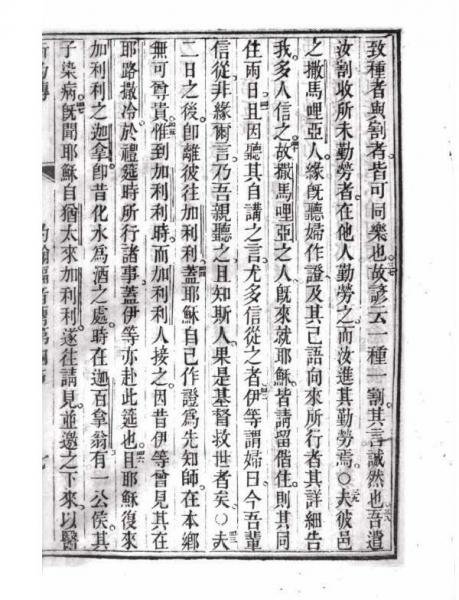 致種者與割者皆可同樂也故諺云一種一割其言誠然也吾遣
汝割收所未勤勞者在他人勤勞之而汝進其勤勞焉○夫彼邑
之撒馬哩亞人緣既聽婦作證及其己語向來所行者其詳細告
我多人信之故撒馬哩亞之人既來就耶穌皆請留偕住則其同
住兩日且因聽其自講之言尤多信從之者伊等謂婦曰今吾輩
信從非緣爾言乃吾親聽之且知斯人果是基督救世者矣○夫
二日之後卽離彼往加利利蓋耶穌自己作證爲先知師在本鄉
無可尊貴惟到加利利時而加利利人接之因昔伊等曾見其在
耶路撒冷於禮筵時所行諸事蓋伊等亦赴此筵也且耶穌復來
加利利之迦拿卽昔化水爲酒之處時在迦百拿翁有一公侯其
子染病既聞耶穌自猶太來加利利遂往請見並邀之下來以醫